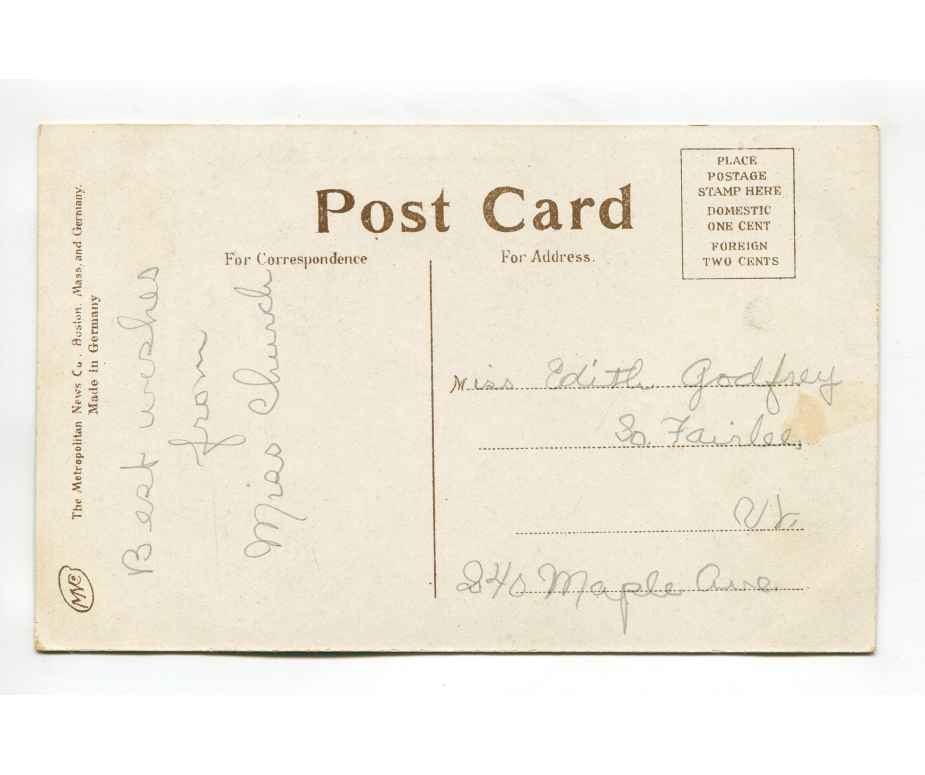 Post Card
For Correspondence
For Address.
PLACE
POSTAGE
STAMP HERE
DOMESTIC
ONE CENT
FOREIGN
TWO CENTS
The Metropolitan News Co., Boston, Mass. and Germany.
Made in Germany
Best wishes
from
Miss Church
Miss Edith Godfrey
So. Fairlee,
Vt.
Maple Ave.